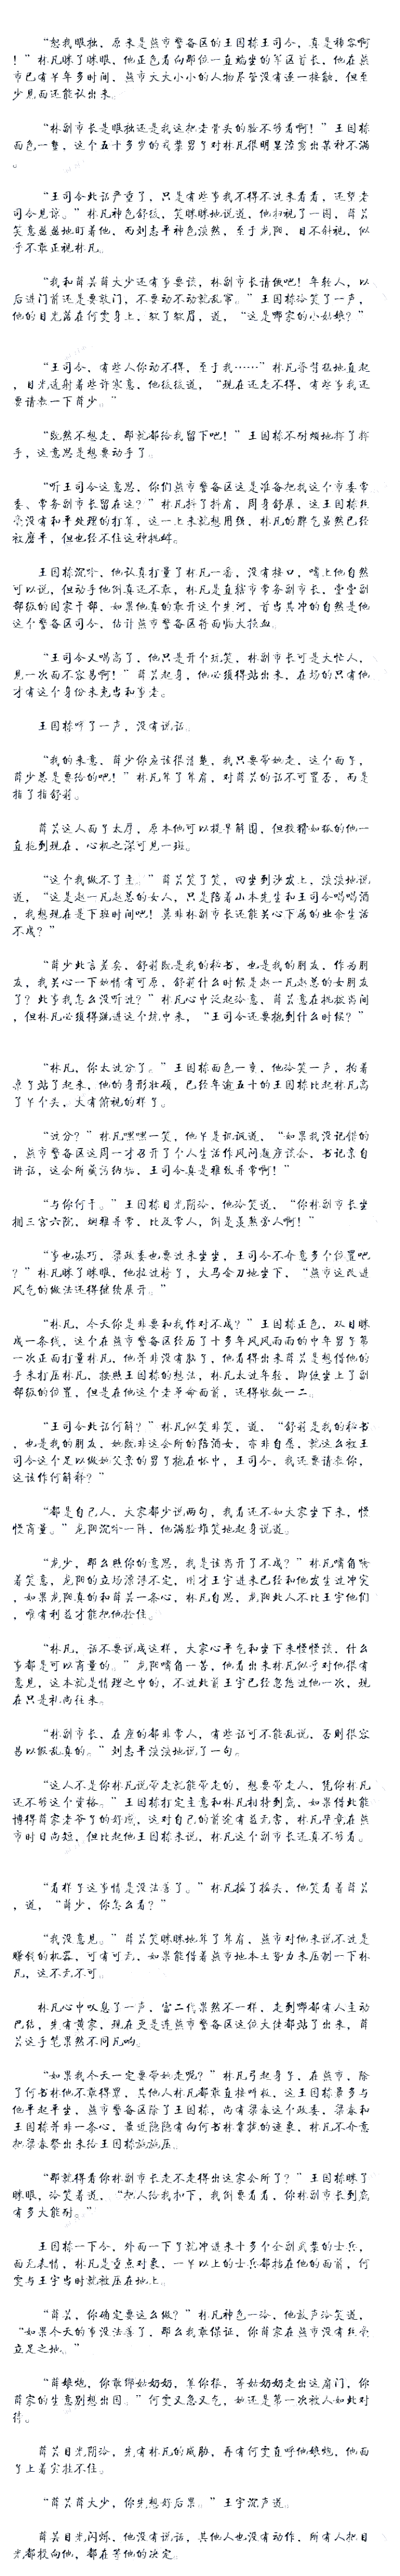 “恕我眼拙，原来是燕市警备区的王国栋王司令，真是稀客啊
！”林凡眯了眯眼，他正色看向那位一直端坐的军区首长，他在燕
市已有半年多时间，燕市大大小小的人物尽管没有逐一接触，但至
少见面还能认出来。
“林副市长是眼拙还是我这把老骨头的脸不够看啊！”王国栋
面色一警，这个五十多岁的戎装男子对林凡很明显流露出某种不满
。
“王司令此话严重了，只是有些事我不得不过来看看，还望老
司令见谅。”林凡神色舒缓，笑眯眯地说道，他扫视了一圈，薛芸
笑意盈盈地盯着他，而刘志平神色淡然，至于龙阳，目不斜视，似
乎不敢正视林凡。
“我和薛芸薛大少还有事要谈，林副市长请便吧！年轻人，以
后进门前还是要敲门，不要动不动就乱窜。”王国栋冷笑了一声，
他的目光落在何雯身上，皱了皱眉，道，“这是哪家的小姑娘？”
“王司令，有些人你动不得，至于我……”林凡脊背猛地直起
，目光透射着些许寒意，他缓缓道，“现在还走不得，有些事我还
要请教一下薛少。”
“既然不想走，那就都给我留下吧！”王国栋不耐烦地挥了挥
手，这意思是想要动手了。
“听王司令这意思，你们燕市警备区这是准备把我这个市委常
委、常务副市长留在这？”林凡抖了抖肩，周身舒展，这王国栋丝
毫没有和平处理的打算，这一上来就想用强，林凡的脾气虽然已经
被磨平，但也经不住这种挑衅。
王国栋沉吟，他认真打量了林凡一番，没有接口，嘴上他自然
可以说，但动手他倒真还不敢，林凡是直辖市常务副市长，堂堂副
部级的国家干部，如果他真的敢开这个先河，首当其冲的自然是他
这个警备区司令，估计燕市警备区将面临大换血。
“王司令又喝高了，他只是开个玩笑，林副市长可是大忙人，
见一次面不容易啊！”薛芸起身，他必须得站出来，在场的只有他
才有这个身份来充当和事老。
王国栋哼了一声，没有说话。
“我的来意，薛少你应该很清楚，我只要带她走，这个面子，
薛少总是要给的吧！”林凡耸了耸肩，对薛芸的话不可置否，而是
指了指舒莉。
薛芸这人面子太厚，原本他可以提早解围，但狡猾如狐的他一
直拖到现在，心机之深可见一斑。
“这个我做不了主。”薛芸笑了笑，回坐到沙发上，淡淡地说
道，“这是赵一凡赵总的女人，只是陪着山本先生和王司令喝喝酒
，我想现在是下班时间吧！莫非林副市长还能关心下属的业余生活
不成？”
“薛少此言差矣，舒莉既是我的秘书，也是我的朋友，作为朋
友，我关心一下她情有可原，舒莉什么时候是赵一凡赵总的女朋友
了？此事我怎么没听过？”林凡心中泛起冷意，薛芸意在挑拨离间
，但林凡必须得跳进这个坑中来，“王司令还要抱到什么时候？”
“林凡，你太过分了。”王国栋面色一章，他冷笑一声，拍着
桌子站了起来，他的身形壮硕，已经年逾五十的王国栋比起林凡高
了半个头，大有俯视的样子。
“过分？”林凡嘿嘿一笑，他半是讥讽道，“如果我没记错的
，燕市警备区这周一才召开了个人生活作风问题座谈会，书记亲自
讲话，这会所藏污纳垢，王司令真是雅致异常啊！”
“与你何干。”王国栋目光阴冷，他冷笑道，“你林副市长坐
拥三宫六院，娴雅异常，比及常人，倒是羡煞旁人啊！”
“事也凑巧，梁政委也要过来坐坐，王司令不介意多个位置吧
？”林凡眯了眯眼，他拉过椅子，大马金刀地坐下，“燕市这改进
风气的做法还得继续展开。”
“林凡，今天你是非要和我作对不成？”王国栋正色，双目眯
成一条线，这个在燕市警备区经历了十多年风风雨雨的中年男子第
一次正面打量林凡，他并非没有脑子，他看得出来薛芸是想借他的
手来打压林凡，按照王国栋的想法，林凡太过年轻，即便坐上了副
部级的位置，但是在他这个老革命面前，还得收敛一二。
“王司令此话何解？”林凡似笑非笑，道，“舒莉是我的秘书
，也是我的朋友，她既非这会所的陪酒女，亦非自愿，就这么被王
司令这个足以做她父亲的男子抱在怀中，王司令，我还要请教你，
这该作何解释？”
“都是自己人，大家都少说两句，我看还不如大家坐下来，慢
慢商量。”龙阳沉吟一阵，他满脸堆笑地起身说道。
“龙少，那么照你的意思，我是该离开了不成？”林凡嘴角噙
着笑意，龙阳的立场漂浮不定，刚才王宇进来已经和他发生过冲突
，如果龙阳真的和薛芸一条心，林凡自思，龙阳此人不比王宇他们
，唯有利益才能把他拴住。
“林凡，话不要说成这样，大家心平气和坐下来慢慢谈，什么
事都是可以商量的。”龙阳嘴角一苦，他看出来林凡似乎对他很有
意见，这本就是情理之中的，不过此前王宇已经忽悠过他一次，现
在只是礼尚往来。
“林副市长，在座的都非常人，有些话可不能乱说，否则很容
易以假乱真的。”刘志平淡淡地说了一句。
“这人不是你林凡说带走就能带走的，想要带走人，凭你林凡
还不够这个资格。”王国栋打定主意和林凡相持到底，如果借此能
博得薛家老爷子的好感，这对自己的前途有益无害，林凡毕竟在燕
市时日尚短，但比起他王国栋来说，林凡这个副市长还真不够看。
“看样子这事情是没法善了。”林凡摇了摇头，他笑看着薛芸
，道，“薛少，你怎么看？”
“我没意见。”薛芸笑眯眯地耸了耸肩，燕市对他来说不过是
赚钱的机器，可有可无，如果能借着燕市地本土势力来压制一下林
凡，这不无不可。
林凡心中叹息了一声，富二代果然不一样，走到哪都有人主动
巴结，先有黄家，现在更是连燕市警备区这位大佬都站了出来，薛
芸这手笔果然不同凡响。
“如果我今天一定要带她走呢？”林凡弓起身子，在燕市，除
了何书林他不敢得罪，其他人林凡都敢直接呼板，这王国栋最多与
他平起平坐，燕市警备区除了王国栋，尚有梁春这个政委，梁春和
王国栋并非一条心，最近隐隐有向何书林靠拢的迹象，林凡不介意
把梁春祭出来给王国栋施施压。
“那就得看你林副市长走不走得出这家会所了？”王国栋眯了
眯眼，冷笑着道，“把人给我扣下，我倒要看看，你林副市长到底
有多大能耐。”
王国栋一下令，外面一下子就冲进来十多个全副武装的士兵，
面无表情，林凡是重点对象，一半以上的士兵都挡在他的面前，何
雯与王宇当时就被压在地上。
“薛芸，你确定要这么做？”林凡神色一冷，他放声冷笑道，
“如果今天的事没法善了，那么我敢保证，你薛家在燕市没有丝毫
立足之地。”
“薛娘炮，你敢绑姑奶奶，算你狠，等姑奶奶走出这扇门，你
薛家的生意别想出国。”何雯又急又气，她还是第一次被人如此对
待。
薛芸目光阴冷，先有林凡的威胁，再有何雯直呼他娘炮，他面
子上着实挂不住。
“薛芸薛大少，你先想好后果。”王宇沉声道。
薛芸目光闪烁，他没有说话，其他人也没有动作，所有人把目
光都投向他，都在等他的决定。